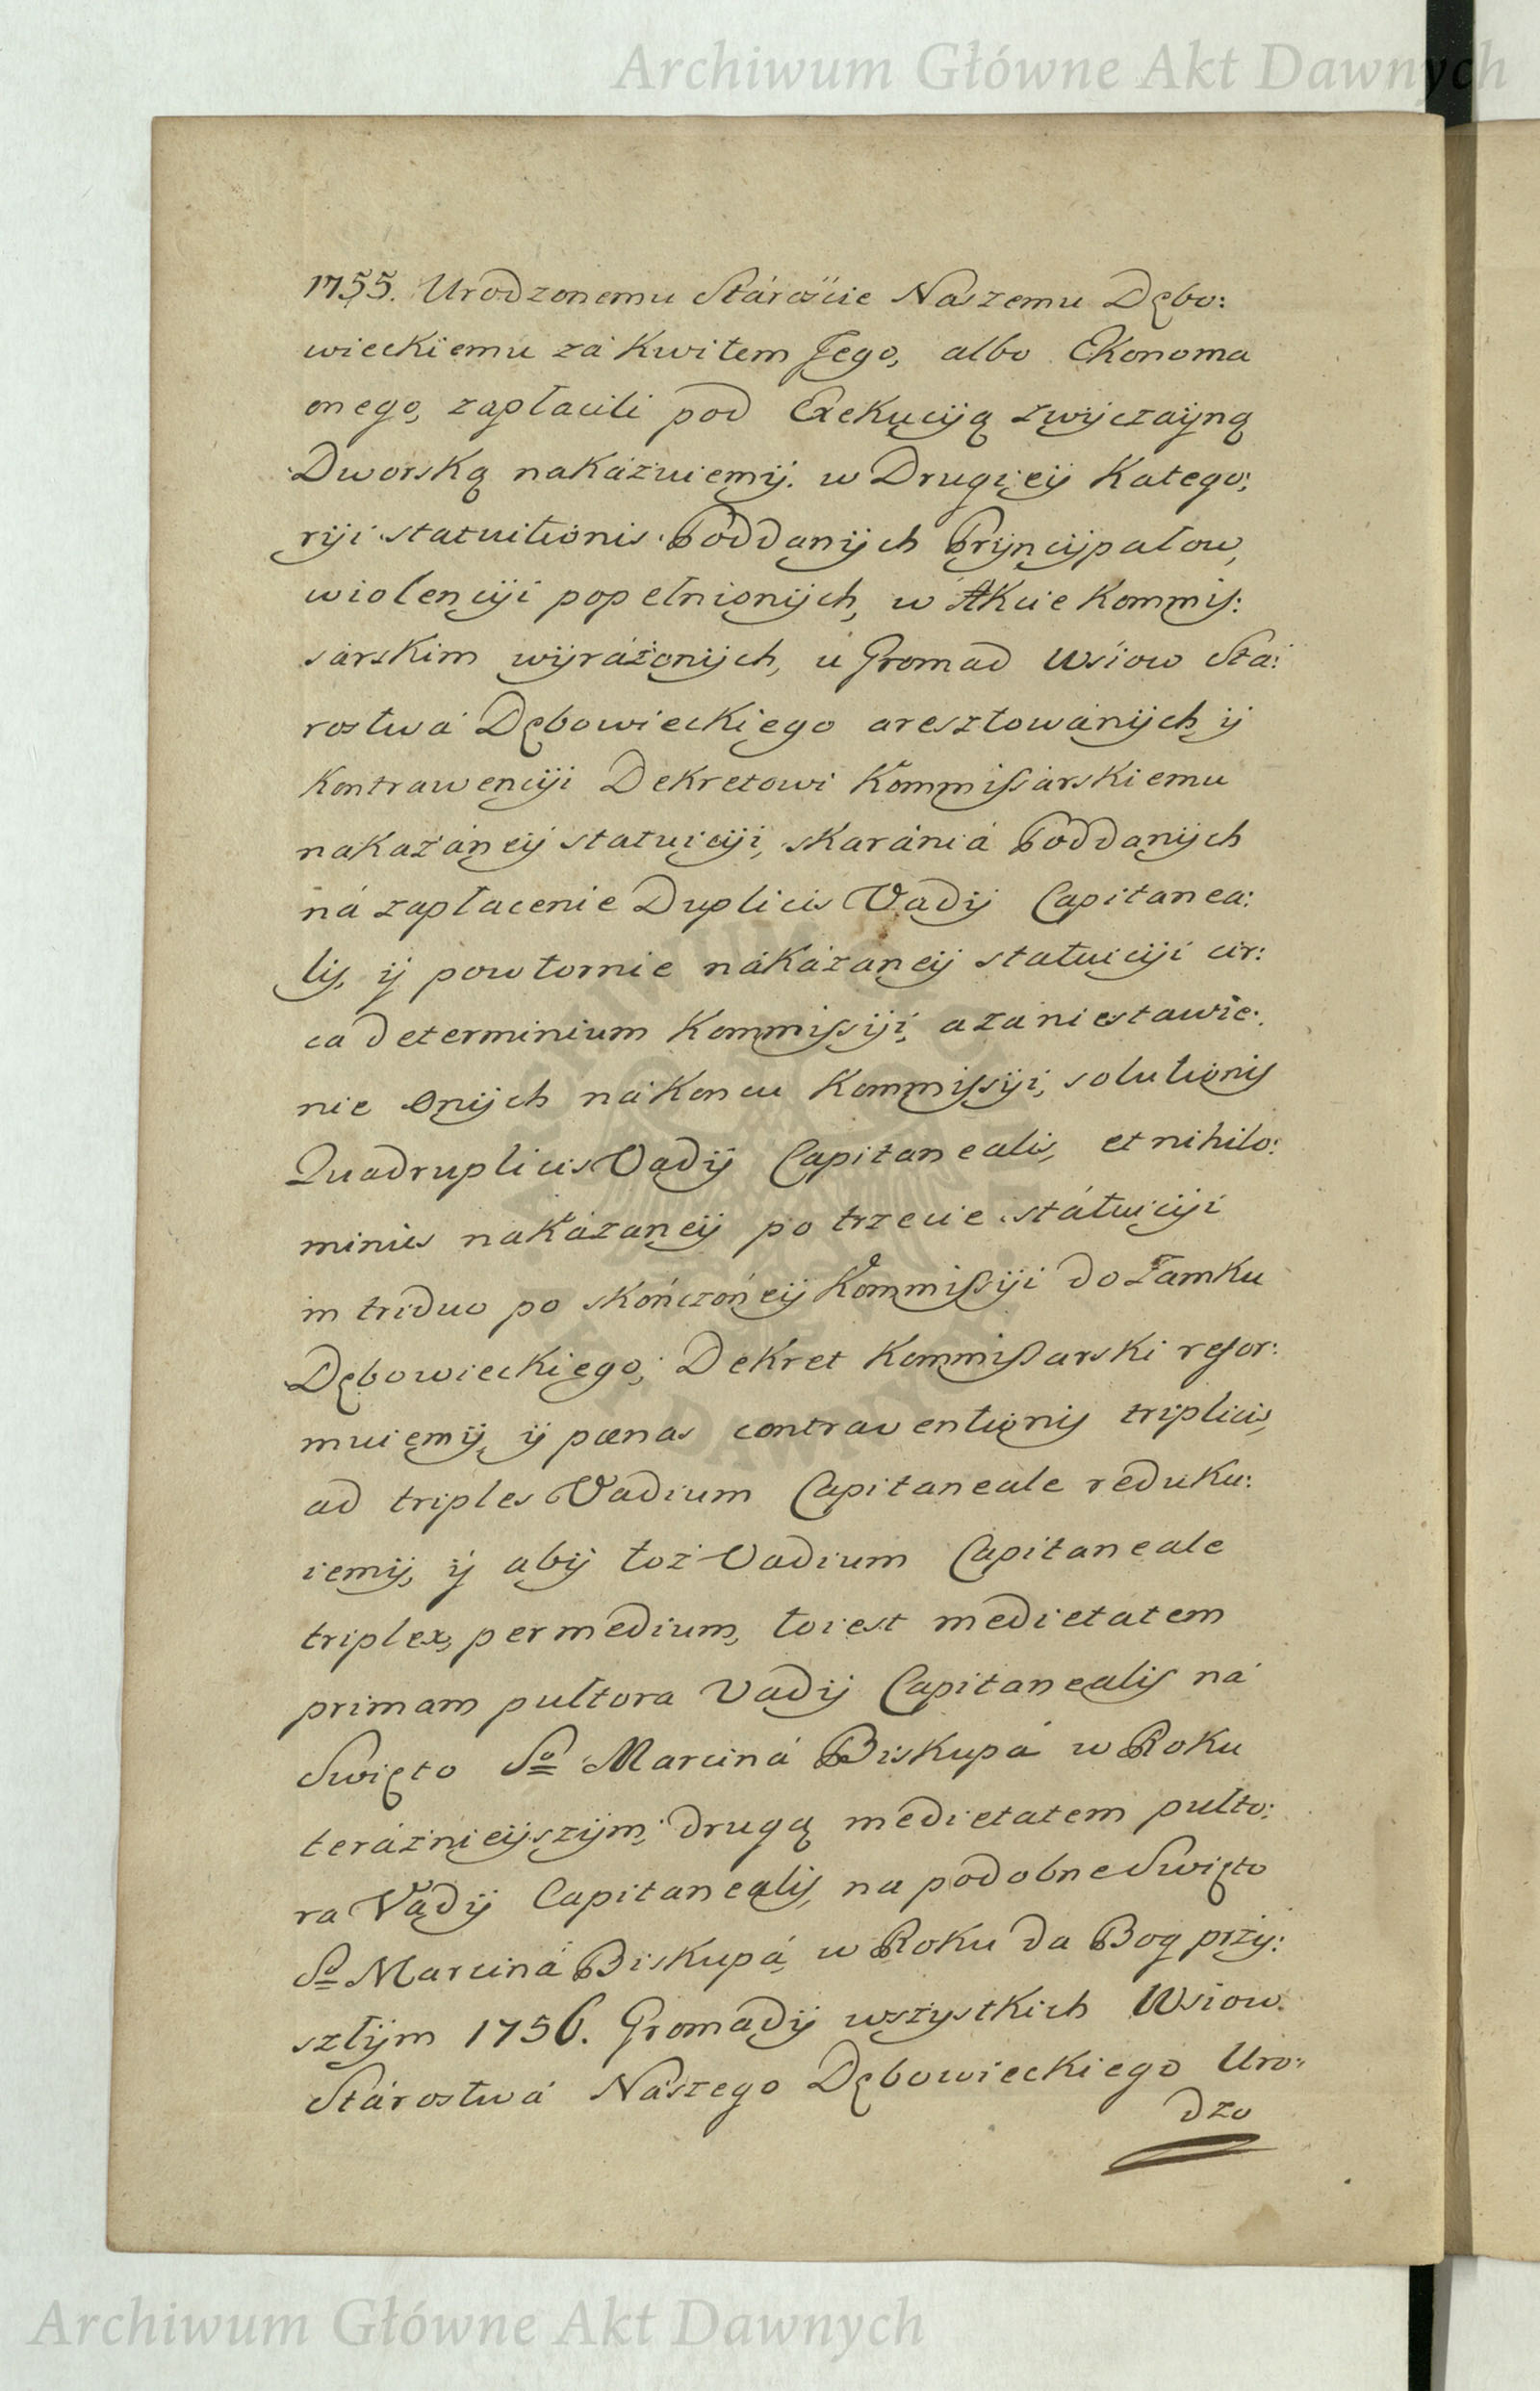 Archiwum Główne Akt Dawnych
1755. Urodzonemu Stárosćie Nászemu Dębo:
wieckiemu zá Kwitem Jego, albo Ekonoma
onego, zapłacili pod Exekucyią zwyiczayną
Dworską nakázuiemÿ. w Drugieÿ Katego:
rÿi statuitionis Poddanÿch Prÿncÿpałow,
wiolencÿi popełnionÿch, w Akcie Kommis:
sárskim wÿráżonÿch, u Gromad Wsiow Stá:
rostwá Dębowieckiego aresztowánÿch ÿ
Kontrawencÿi Dekretowi Kommissárskiemu
nakazáneÿ statuicÿi, skaránia Poddanÿch
ná zapłacenie Duplicis Vadÿ Capitanea:
lis, ÿ powtornie nákázaneÿ statuicÿi cir:
ca determinium Kommissÿi, a zá niestawie:
nie onÿch ná Koncu Kommissÿi, solutionis
Quadruplicis Vadÿ Capitanealis, et nihilo:
minus nakázaneÿ po trzecie státuicÿi
in triduo po skończoneÿ Kommissÿi do Zamku
Dębowieckiego; Dekret Kommissarski refor:
muiemÿ, ÿ pœnas contraventionis triplicis,
ad triplex Vadium Capitaneale reduku:
iemÿ, ÿ abÿ toż Vadium Capitaneale
triplex, per medium, to iest medietatem
primam pułtora Vadÿ Capitanealis ná
Swięto So Marciná Biskupá w Roku
teráznieÿszÿm; drugą medietatem pułto:
ra Vadÿ Capitanealis, na podobne Swięto
So Marciná Biskupá, w Roku da Bog przÿ:
szłÿm 1756. Gromadÿ wszystkich Wsiow
Stárostwá Nászego Dębowieckiego Uro:
dzo
Archiwum Główne Akt Dawnych